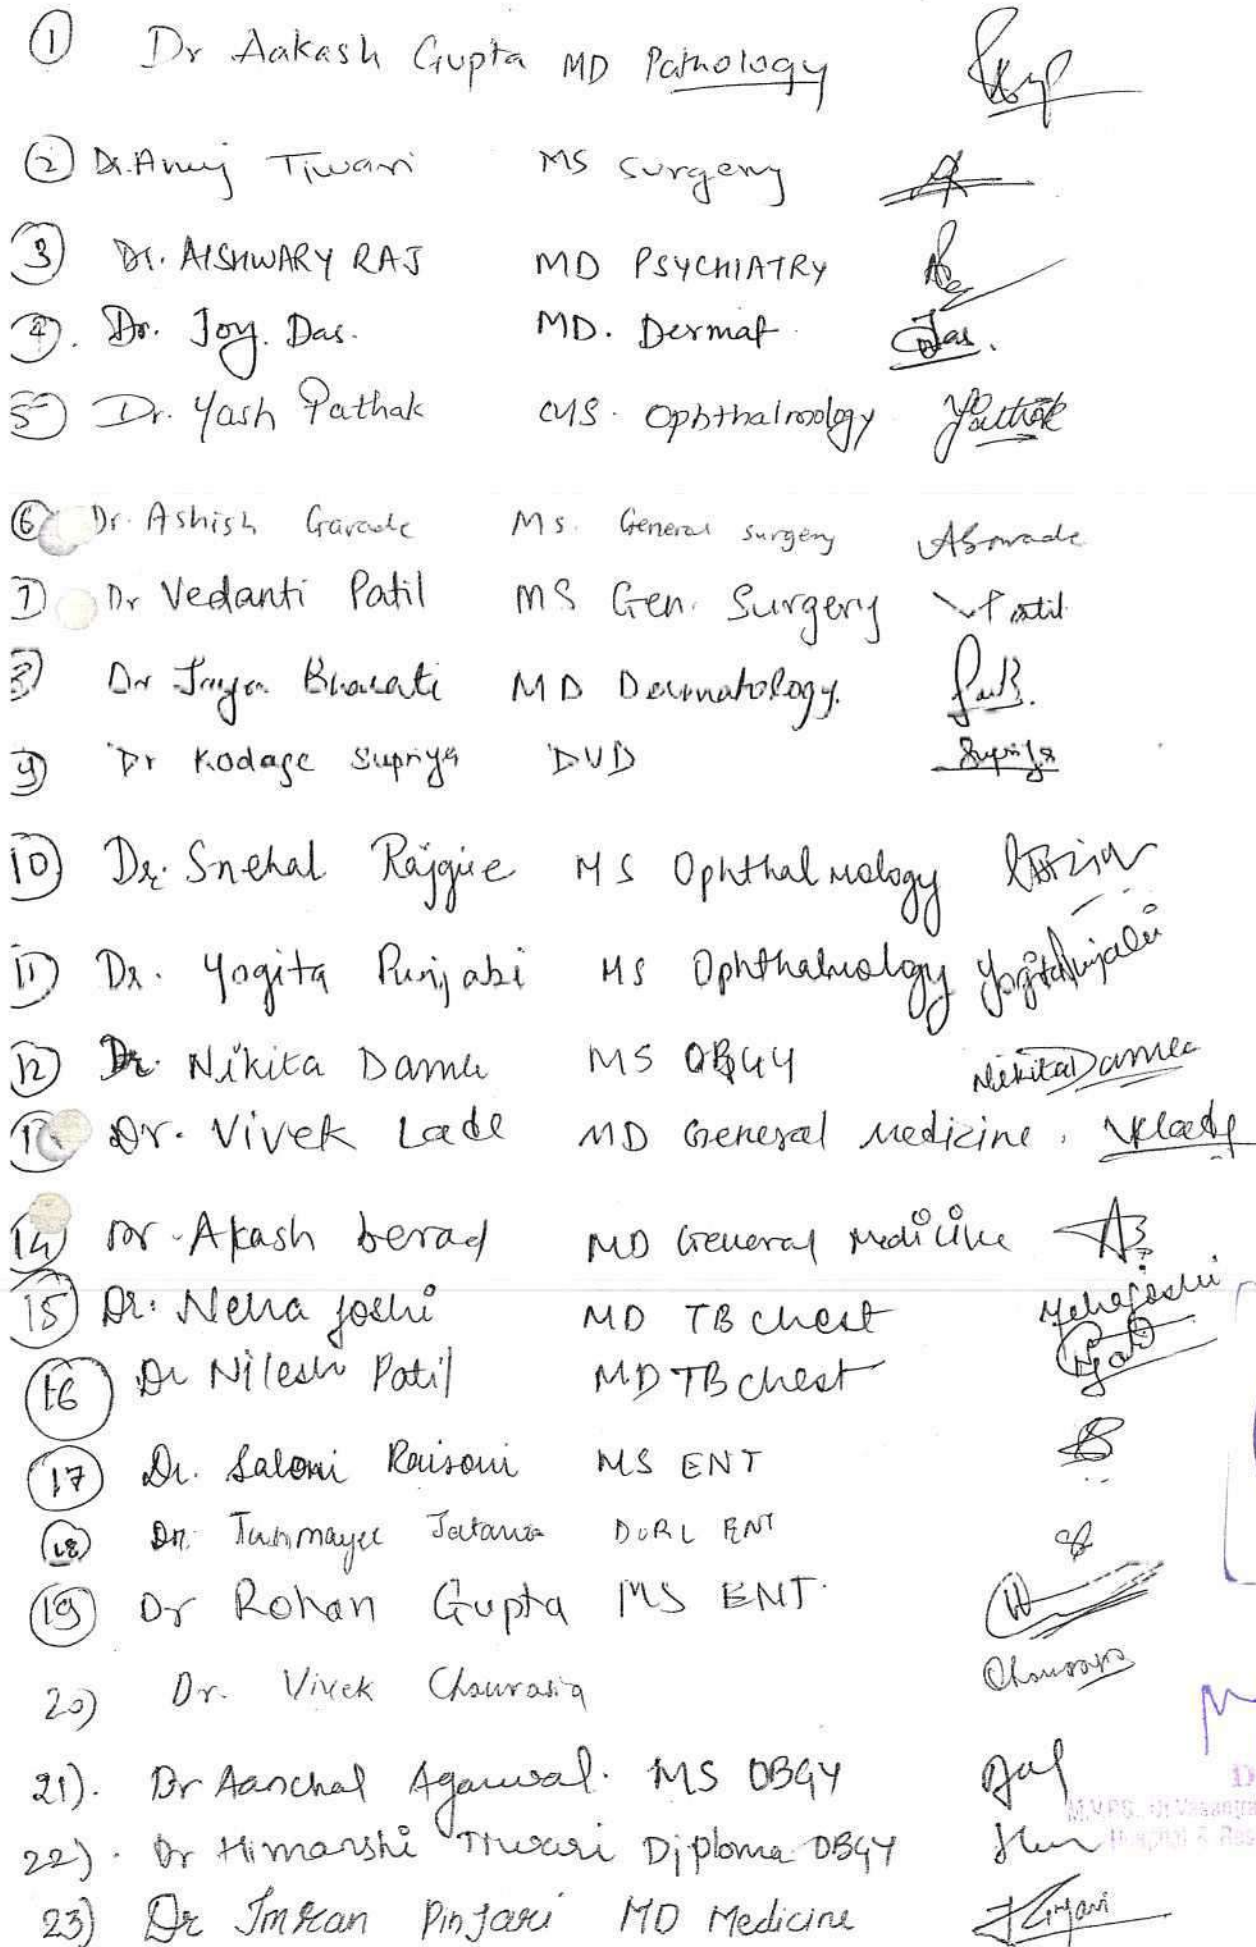 ① Dr Aakash Gupta MD Pathology
② Dr. Anuj Tiwari MS Surgery
③ Dr. AISHWARY RAJ MD PSYCHIATRY
④. Dr. Joy. Das. MD. Dermat. Das.
⑤ Dr. Yash Pathak MS. Ophthalmology YPathak
⑥ Dr. Ashish Garade Ms. General surgery
⑦ Dr Vedanti Patil MS Gen. Surgery VPatil
⑧ Dr Jaya Bharati MD Dermatology.
⑨ Dr Kodage Supriya DVD Supriya
⑩ Dr. Snehal Rajgire MS Ophthalmology
⑪ Dr. Yogita Punjabi MS Ophthalmology Yogita Punjabi
⑫ Dr. Nikita Damle MS OBGY Nikita Damle
Dr. Vivek Lade MD General Medicine. VLade
⑭ Dr. Akash berad MD General Medicine
⑮ Dr. Neha Joshi MD TB chest Neha Joshi
⑯ Dr Nilesh Patil MD TB chest
⑰ Dr. Saloni Raisoni MS ENT
⑱ Dr. Tanmayee DORL ENT
⑲ Dr Rohan Gupta MS ENT.
20) Dr. Vivek Chourasia
21). Dr Aanchal Agarwal. MS OBGY
22). Dr Himanshi Tiwari Diploma OBGY
23) Dr Imran Pinjari MD Medicine